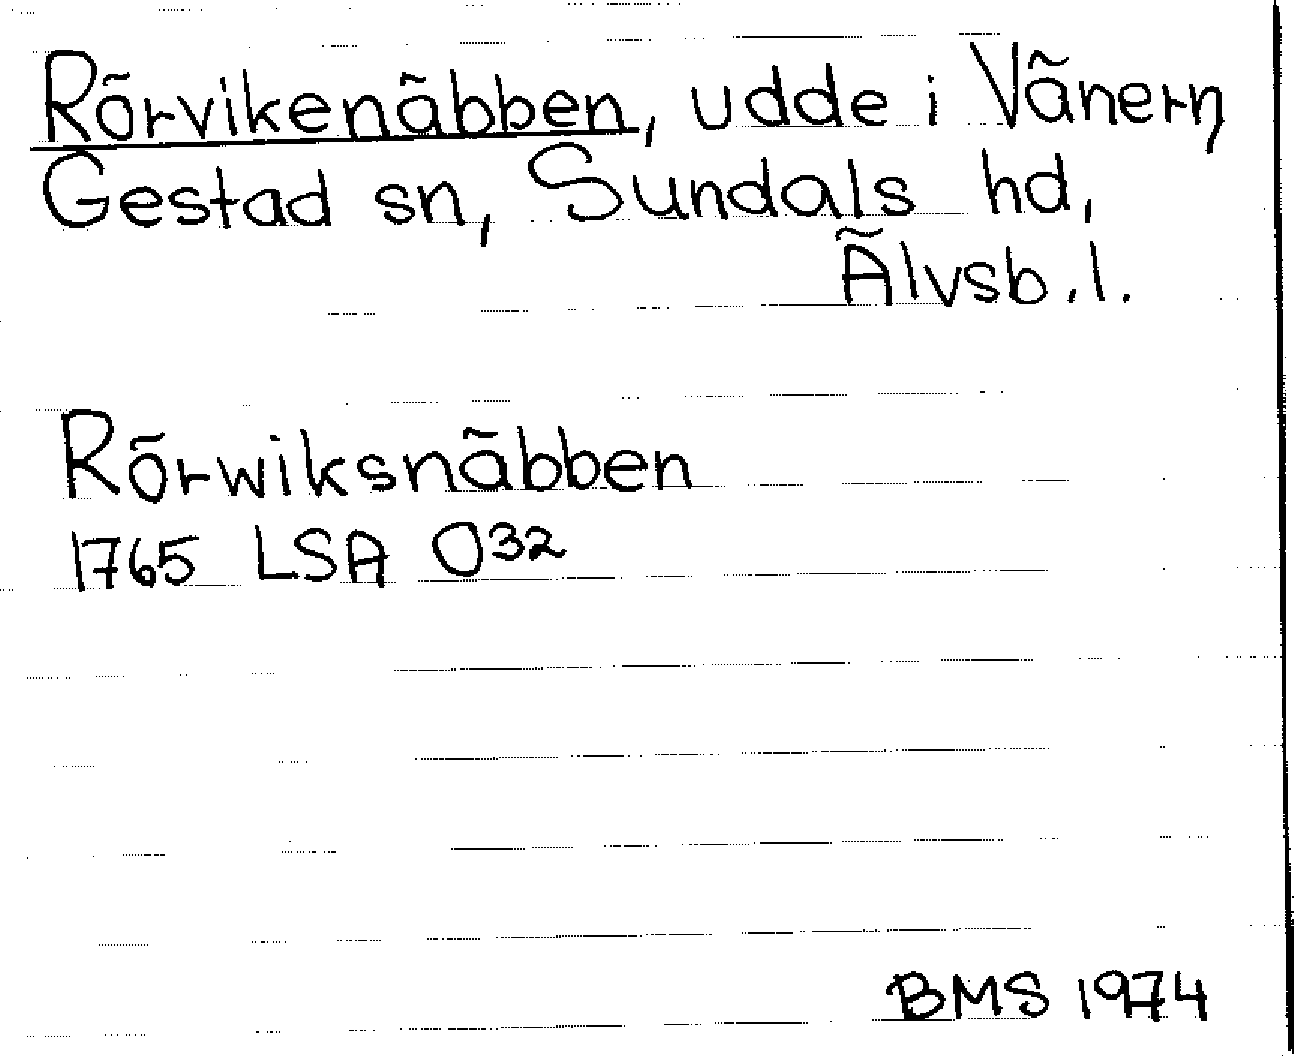 Rörvikenäbben, udde i Vänern,
Gestad sn, Sundals hd,
Älvsb.l.
Rörwiksnäbben
1765 LSA O32
BMS 1974